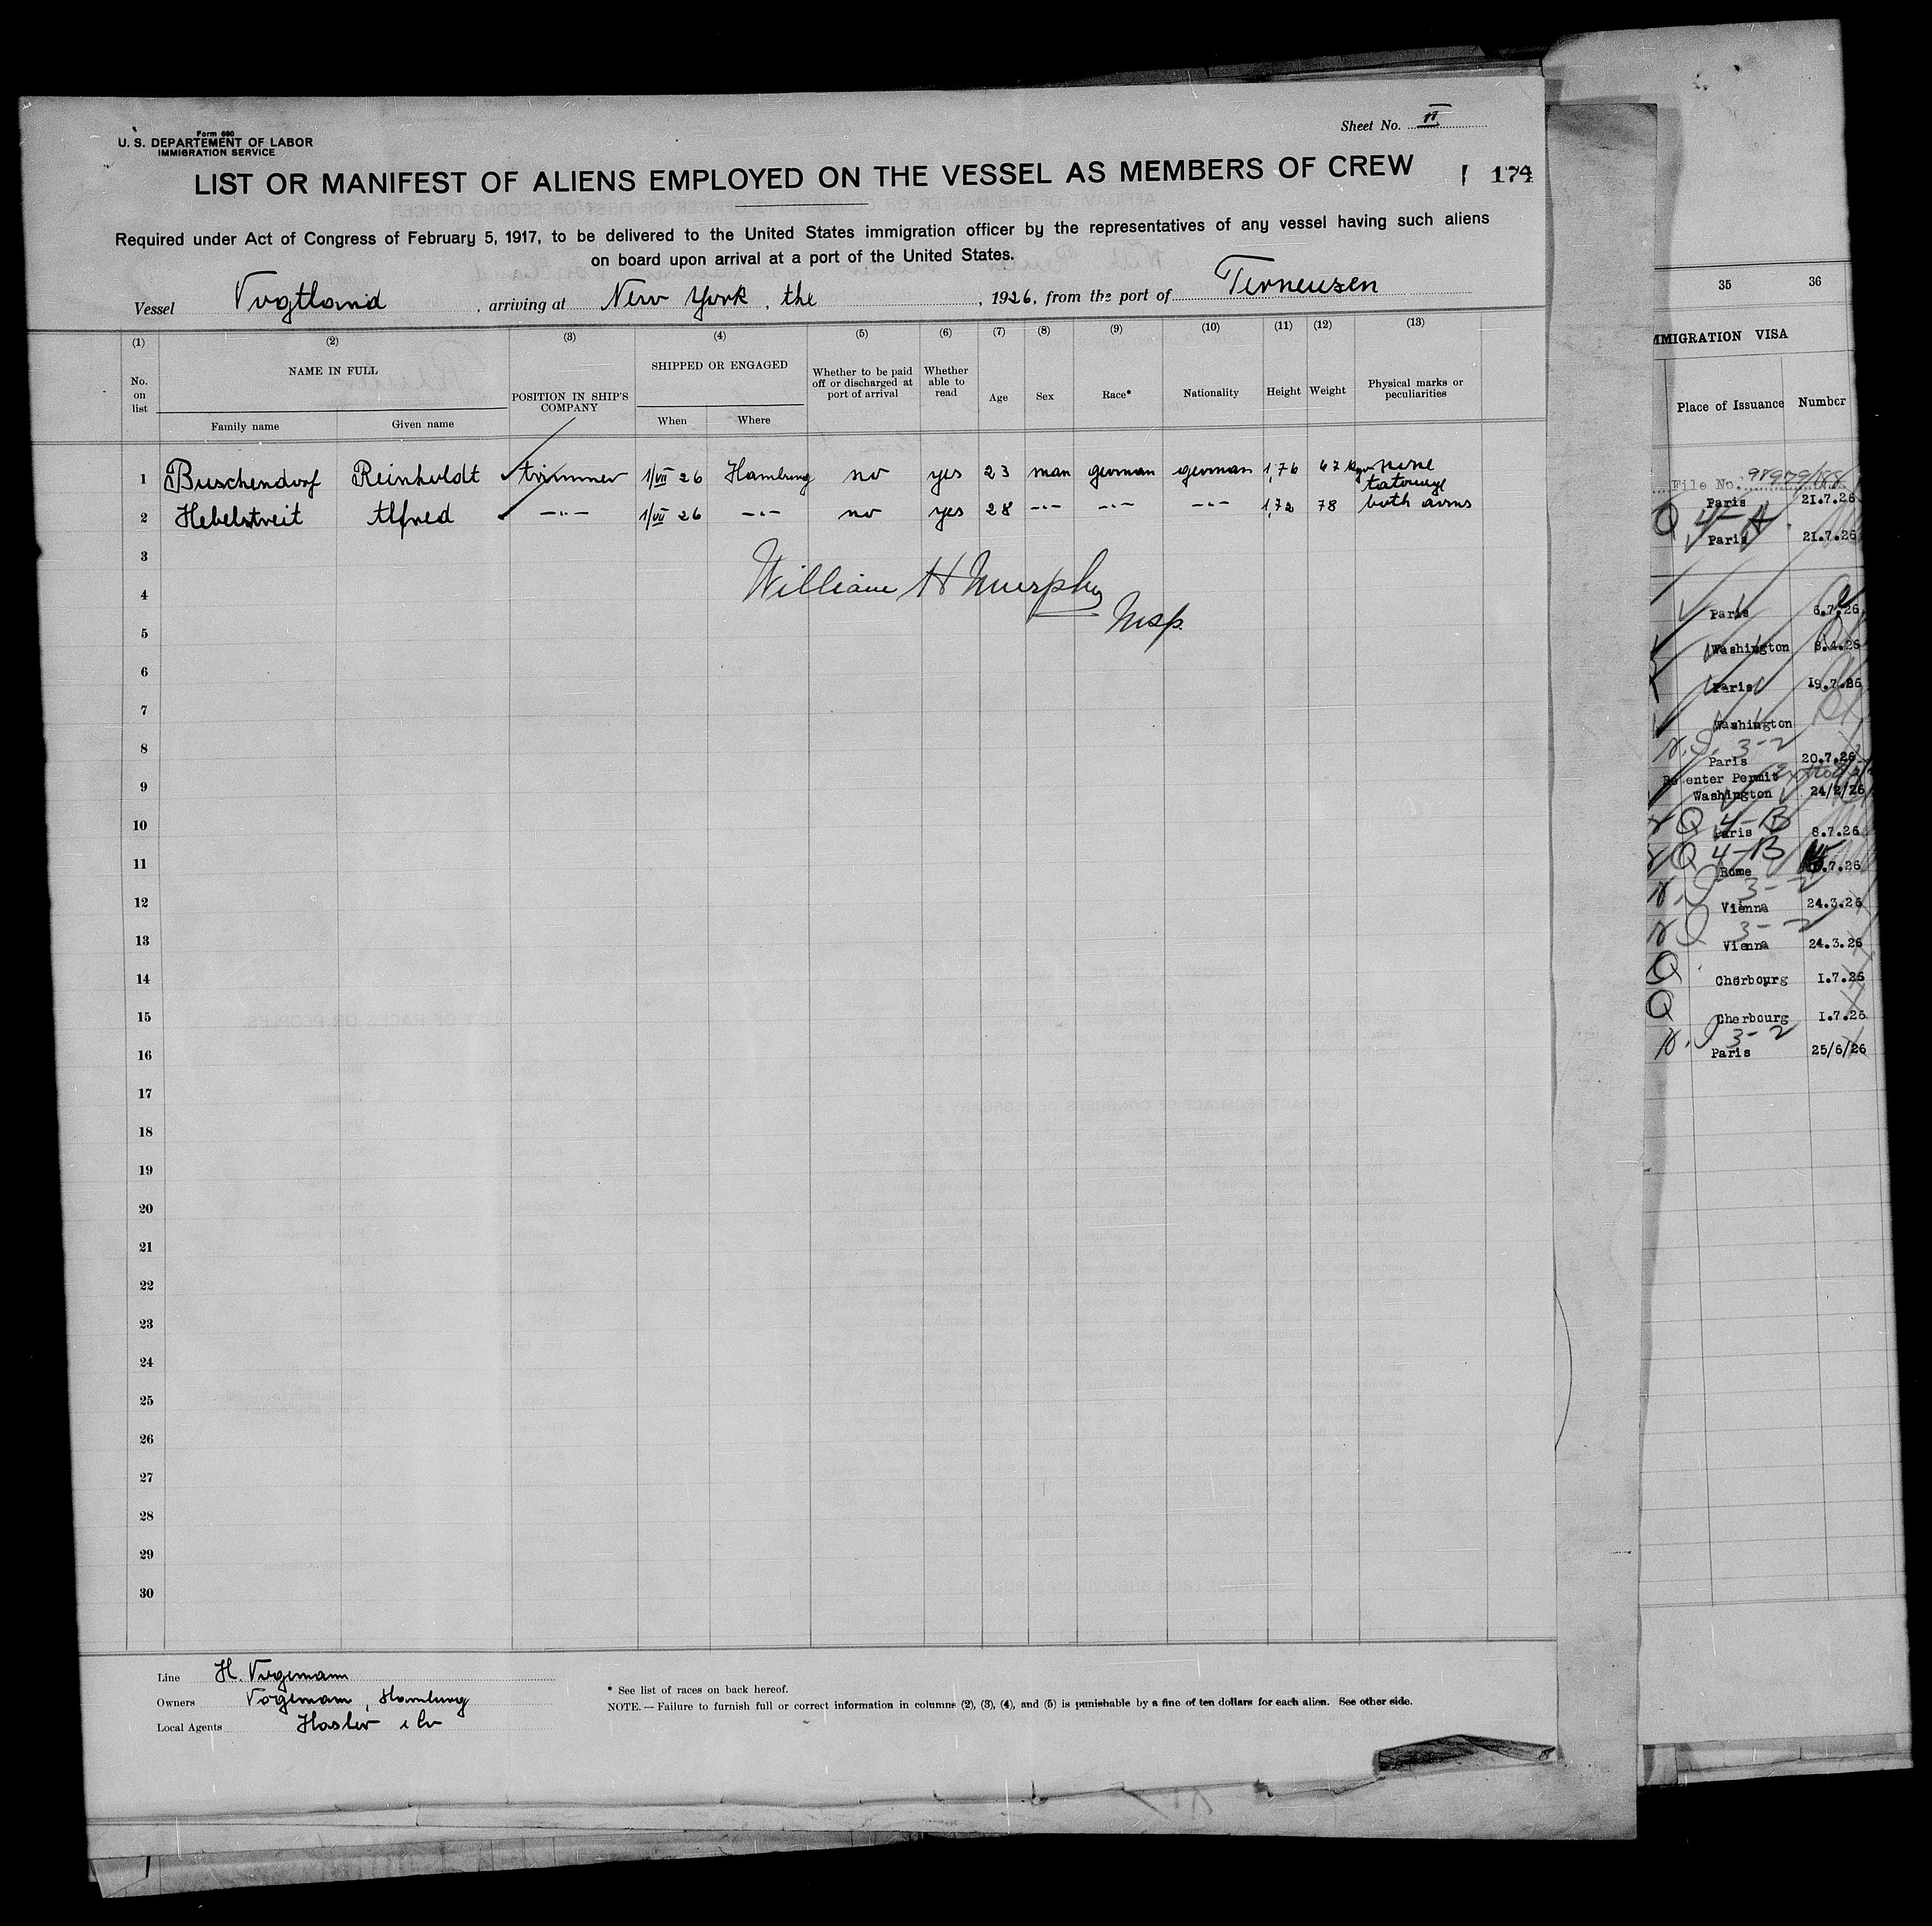 Form 680
U. S. DEPARTEMENT OF LABOR
IMMIGRATION SERVICE
Sheet No. II
LIST OR MANIFEST OF ALIENS EMPLOYED ON THE VESSEL AS MEMBERS OF CREW
174
Required under Act of Congress of February 5, 1917, to be delivered to the United States immigration officer by the representatives of any vessel having such aliens
on board upon arrival at a port of the United States.
Vessel Vogtland, arriving at New York, the , 1926, from the port of Terneuzen
(1) (2) (3) (4) (5) (6) (7) (8) (9) (10) (11) (12) (13)
No. on list
NAME IN FULL
Family name Given name
POSITION IN SHIP'S COMPANY
SHIPPED OR ENGAGED
When Where
Whether to be paid off or discharged at port of arrival
Whether able to read
Age Sex Race* Nationality Height Weight
Physical marks or peculiarities
1 Buschendorf Reinholdt trimmer 1/VII 26 Hamburg no yes 23 man german german 1,76 67 kgr none
2 Hebelstreit Alfred -"- 1/VII 26 -"- no yes 28 -"- -"- -"- 1,72 78 tatouage both arms
3
William H Murphy
4
Insp.
5
6
7
8
9
10
11
12
13
14
15
16
17
18
19
20
21
22
23
24
25
26
27
28
29
30
Line H. Vogemann
Owners Vogemann, Hamburg
Local Agents Hasler & Co
* See list of races on back hereof.
NOTE. — Failure to furnish full or correct information in columns (2), (3), (4), and (5) is punishable by a fine of ten dollars for each alien. See other side.
35 36
IMMIGRATION VISA
Place of Issuance Number
File No.
Paris 21.7.26
Q 4-A
Paris 21.7.26
Paris 6.7.26
Washington 8.4.26
Paris 19.7.26
Washington
3-2
Paris 20.7.26
Re enter Permit
Washington 24/2/26
Q 4-B
Paris 8.7.26
Q 4-B
Rome .7.26
3-2
Vienna 24.3.26
3-2
Vienna 24.3.26
Q
Cherbourg 1.7.26
Q
Cherbourg 1.7.26
3-2
Paris 25/6/26